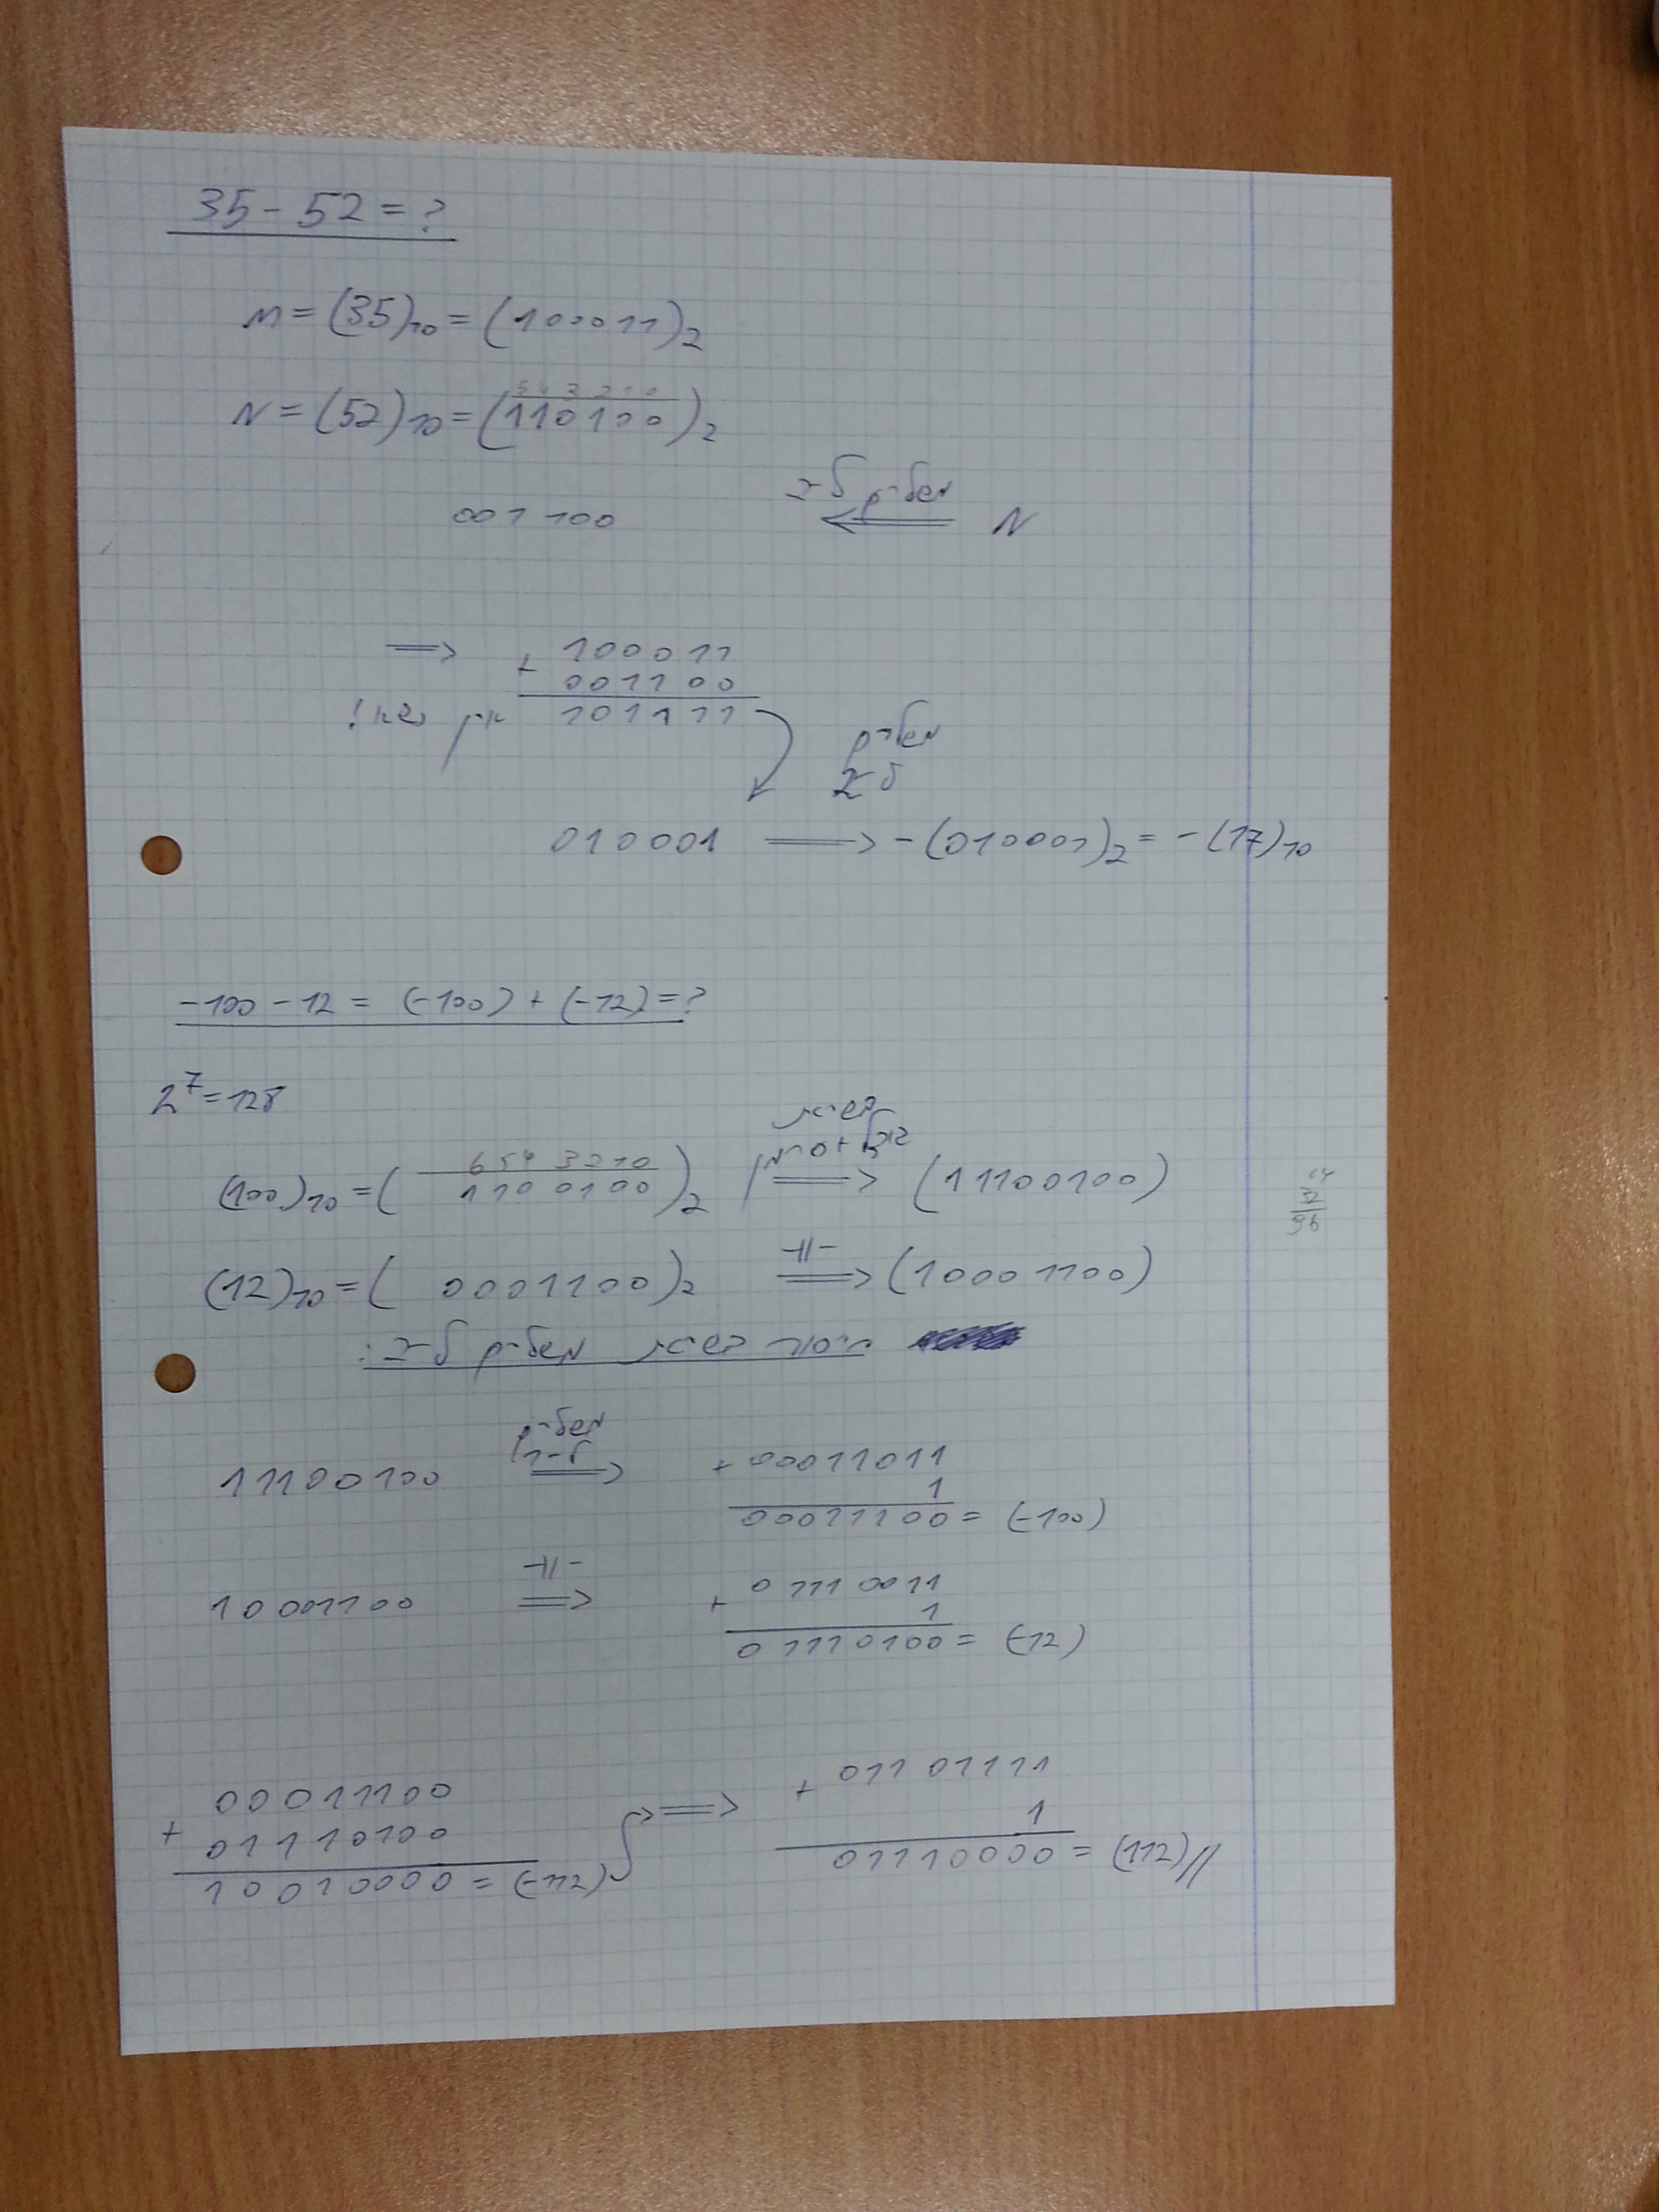 35 - 52 = ?
M = (35)₁₀ = (100011)₂
5 4 3 2 1 0
N = (52)₁₀ = (110100)₂
N משלים ל-2 ⟸ 001100
⟹ 100011
+ 001100
101111 אין נשא!
משלים
ל-2
010001 ⟹ -(010001)₂ = -(17)₁₀
-100 - 12 = (-100) + (-12) = ?
2⁷ = 128
6 5 4 3 2 1 0
(100)₁₀ = (1100100)₂ בשיטת גודל + סימן ⟹ (11100100)
64
32
96
(12)₁₀ = (0001100)₂ -||- ⟹ (10001100)
בשיטת משלים ל-2:
11100100 משלים ל-1 ⟹ + 00011011
1
00011100 = (-100)
10001100 -||- ⟹ + 01110011
1
01110100 = (-12)
00011100
+ 01110100
10010000 = (-112)
⟹ + 01101111
1
01110000 = (112)//